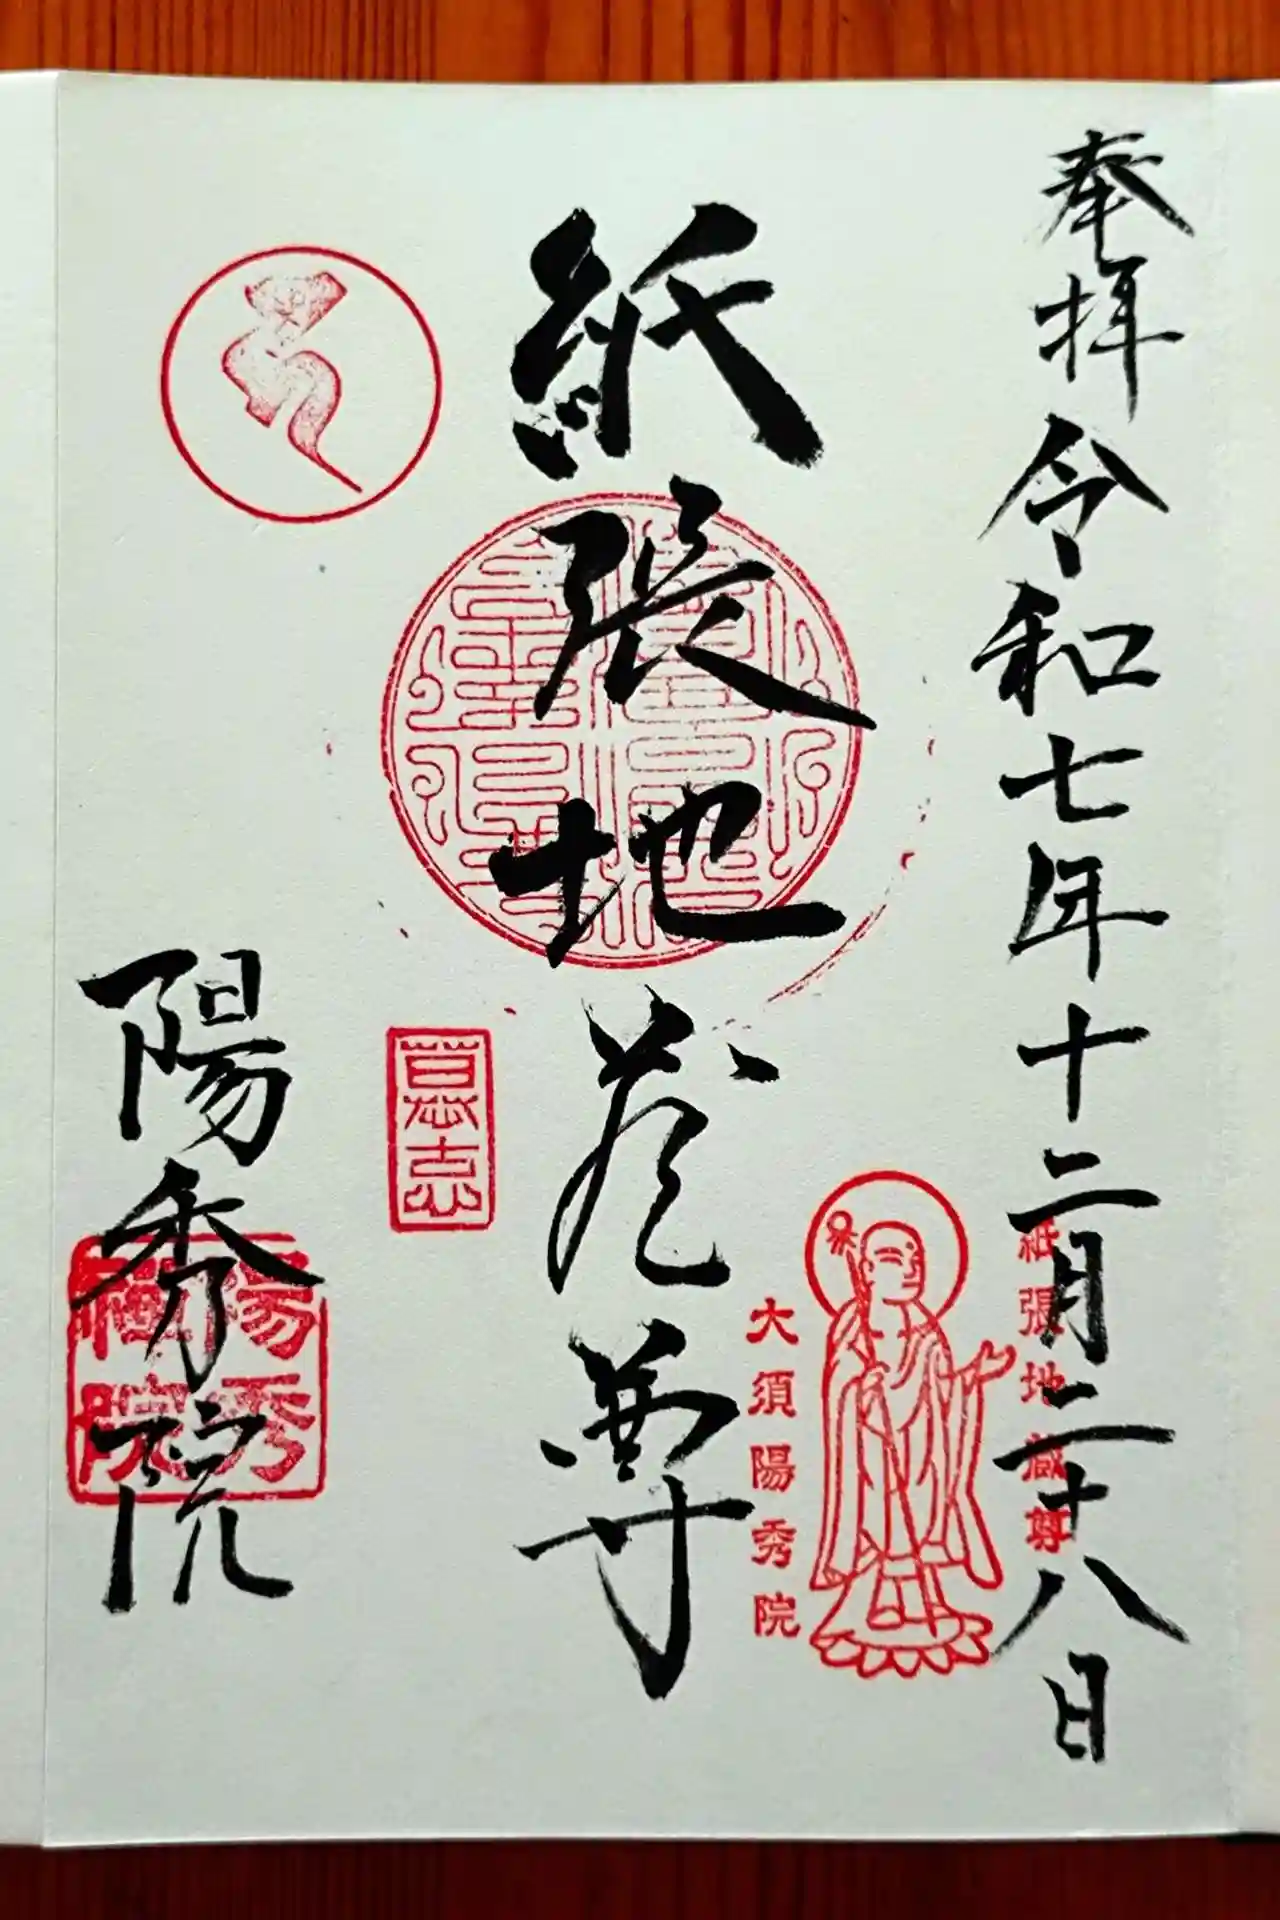 奉拝 令和七年十二月二十八日
紙張地蔵尊
大須陽秀院
紙張地蔵尊
陽秀院
陽秀
禅院